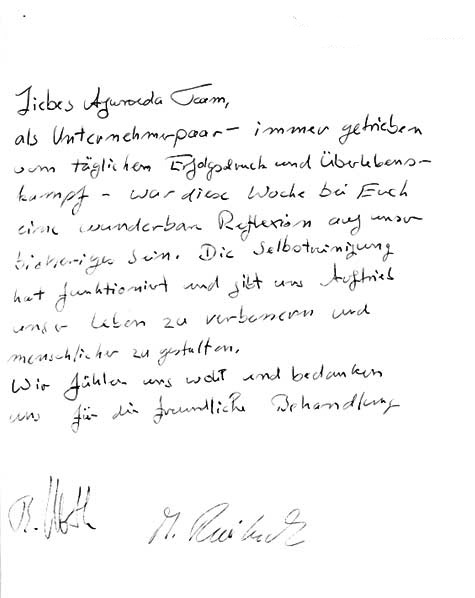 Liebes Ayurveda Team,
als Unternehmerpaar – immer getrieben
vom täglichen Erfolgsdruck und Überlebens-
kampf – war diese Woche bei Euch
eine wunderbare Reflexion auf unser
bisheriges Sein. Die Selbstreinigung
hat funktioniert und gibt uns Auftrieb
unser Leben zu verbessern und
menschlicher zu gestalten.
Wir fühlen uns wohl und bedanken
uns für die freundliche Behandlung